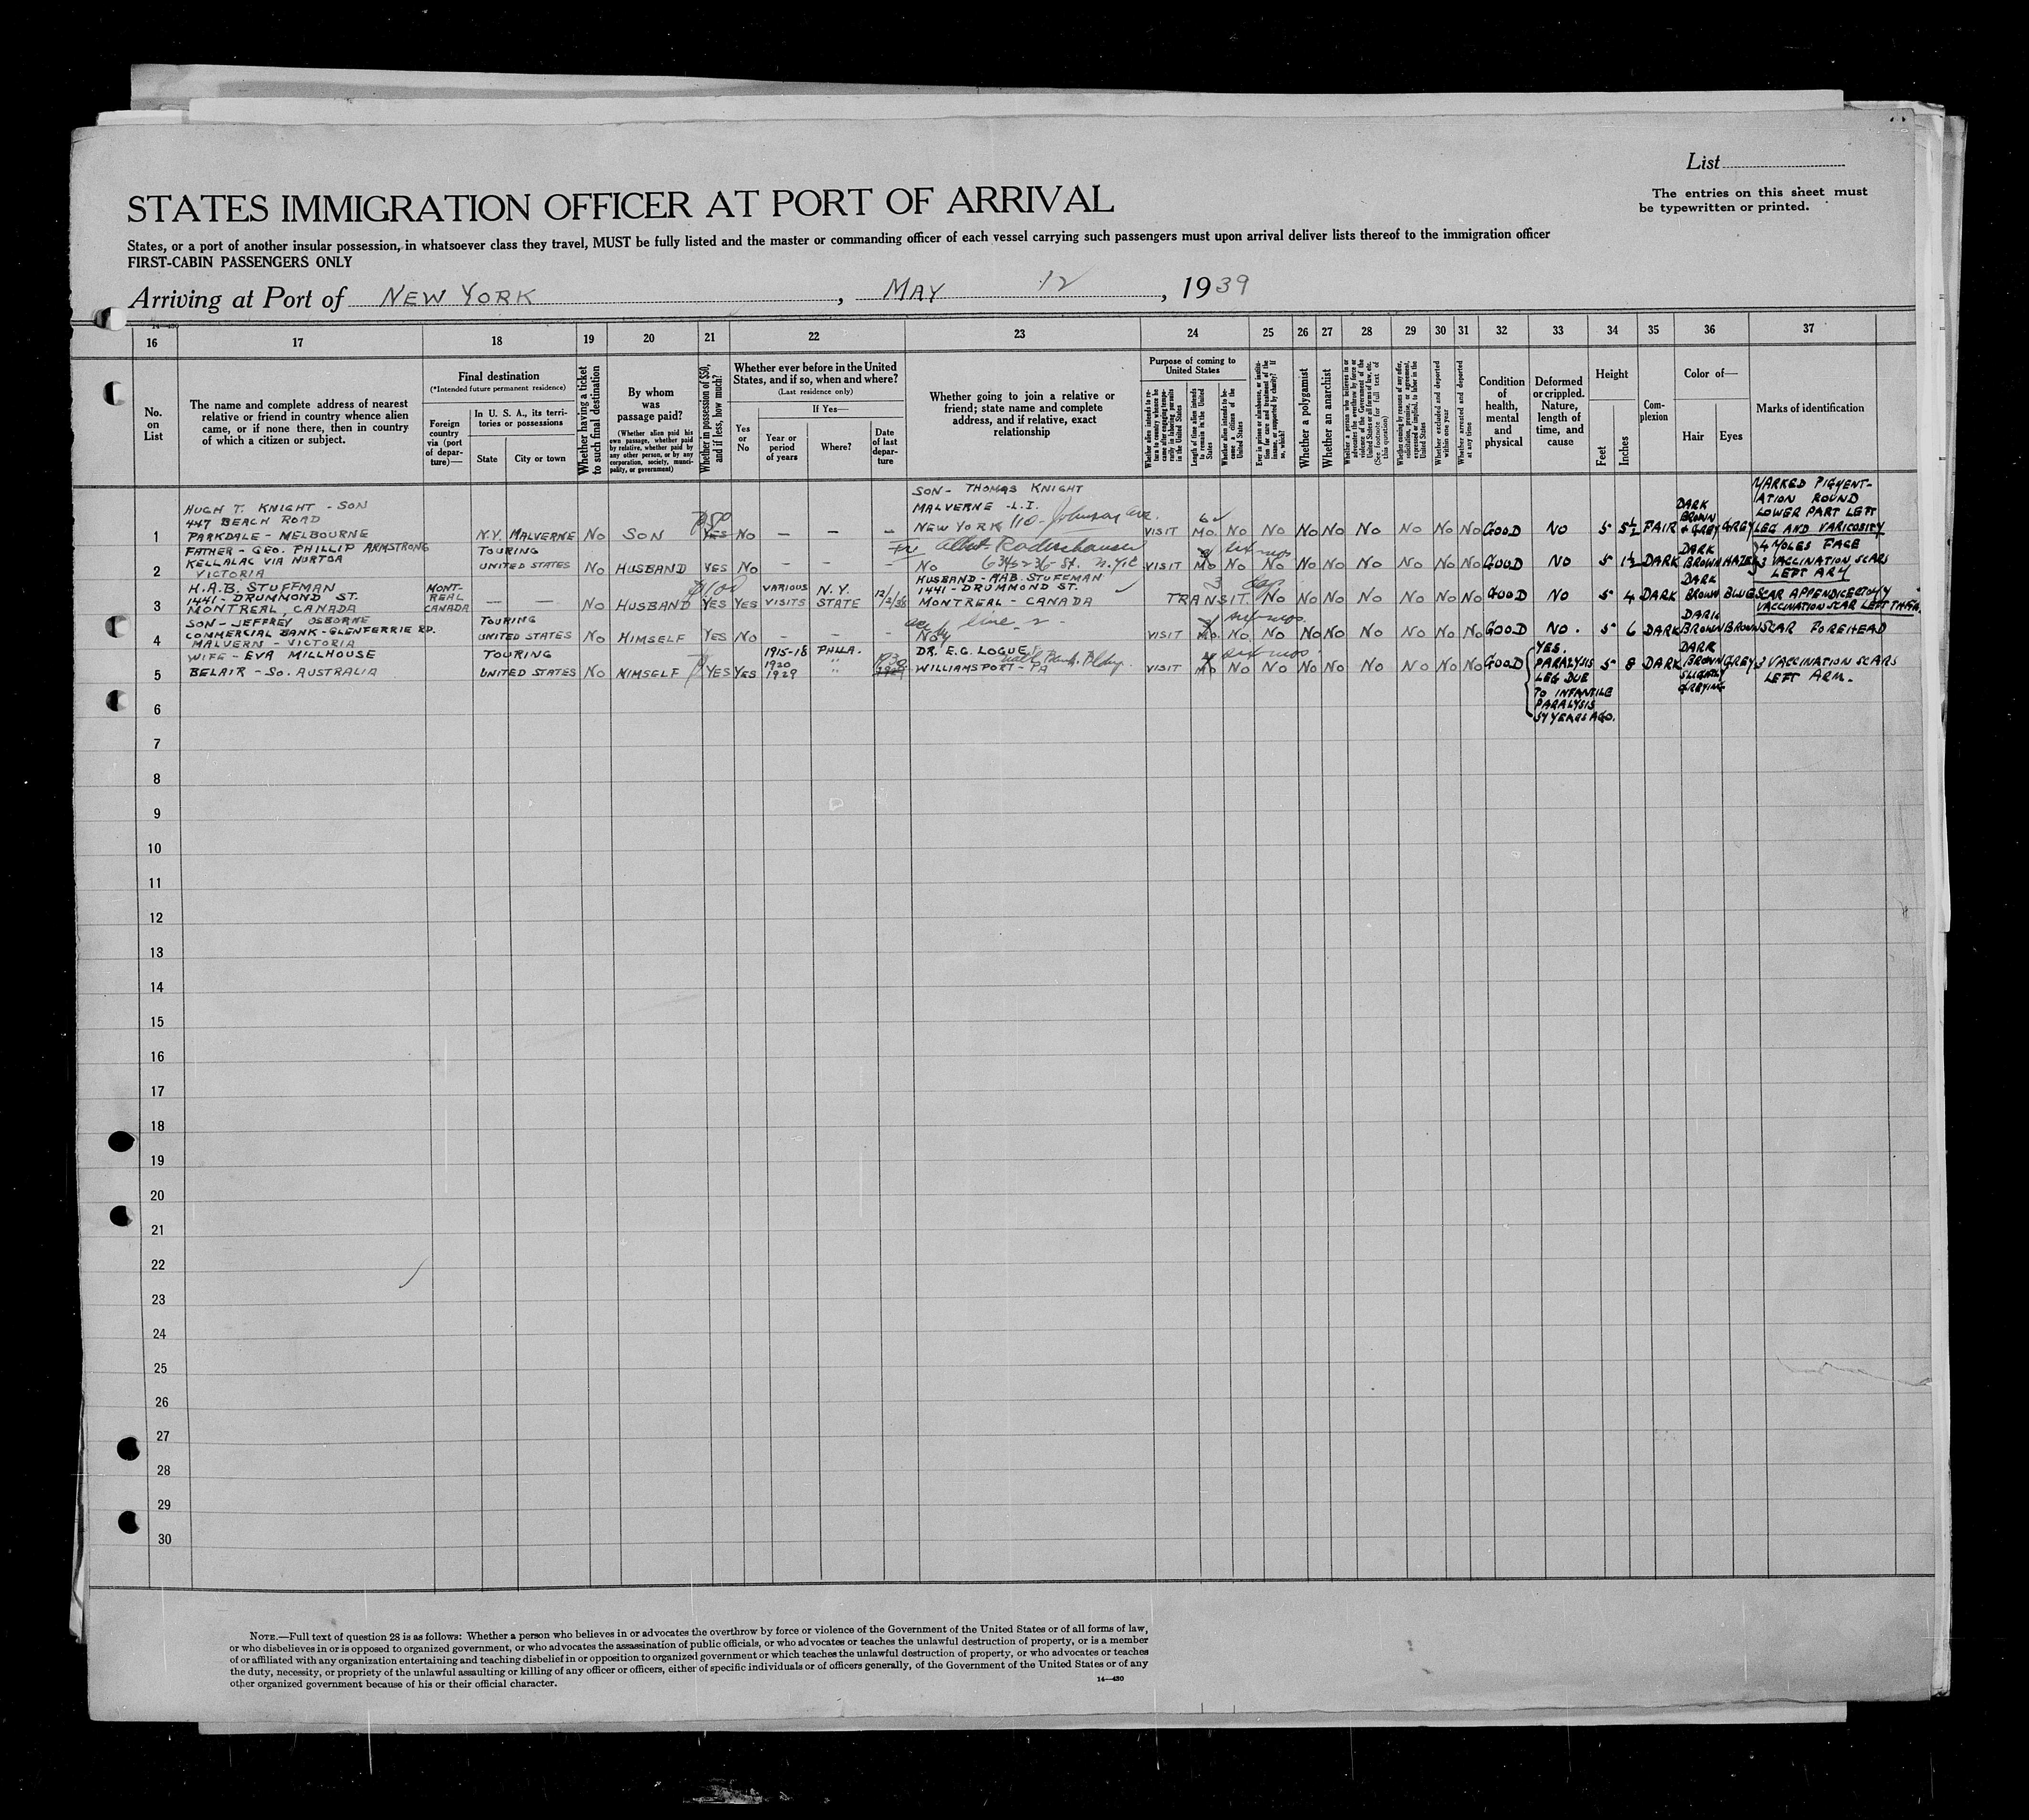 List
STATES IMMIGRATION OFFICER AT PORT OF ARRIVAL
The entries on this sheet must
be typewritten or printed.
States, or a port of another insular possession, in whatsoever class they travel, MUST be fully listed and the master or commanding officer of each vessel carrying such passengers must upon arrival deliver lists thereof to the immigration officer
FIRST-CABIN PASSENGERS ONLY
Arriving at Port of NEW YORK, MAY 12, 1939
14—430
16 17 18 19 20 21 22 23 24 25 26 27 28 29 30 31 32 33 34 35 36 37
No. on List
The name and complete address of nearest
relative or friend in country whence alien
came, or if none there, then in country
of which a citizen or subject.
Final destination
(*Intended future permanent residence)
Foreign country via (port of departure)—
In U. S. A., its territories or possessions
State
City or town
Whether having a ticket to such final destination
By whom was passage paid?
(Whether alien paid his own passage, whether paid by relative, whether paid by any other person, or by any corporation, society, municipality, or government)
Whether in possession of $50, and if less, how much?
Whether ever before in the United States, and if so, when and where?
(Last residence only)
Yes or No
If Yes—
Year or period of years
Where?
Date of last departure
Whether going to join a relative or
friend; state name and complete
address, and if relative, exact
relationship
Purpose of coming to United States
Whether alien intends to return to country whence he came after engaging temporarily in laboring pursuits in the United States
Length of time alien intends to remain in the United States
Whether alien intends to become a citizen of the United States
Ever in prison or almshouse, or institution for care and treatment of the insane, or supported by charity? If so, which?
Whether a polygamist
Whether an anarchist
Whether a person who believes in or advocates the overthrow by force or violence of the Government of the United States or all forms of law, etc. (See footnote for full text of this question)
Whether coming by reasons of any offer, solicitation, promise, or agreement, expressed or implied, to labor in the United States
Whether excluded and deported within one year
Whether arrested and deported at any time
Condition of health, mental and physical
Deformed or crippled. Nature, length of time, and cause
Height
Feet
Inches
Complexion
Color of—
Hair
Eyes
Marks of identification
1 HUGH T. KNIGHT - SON
447 BEACH ROAD
PARKDALE - MELBOURNE
N.Y. MALVERNE NO SON $50 YES NO — — —
SON - THOMAS KNIGHT
MALVERNE - L.I.
NEW YORK 110 - Johnson Ave.
VISIT 6 MO. NO NO NO NO NO NO NO NO GOOD NO 5 5½ FAIR DARK BROWN & GREY GREY
MARKED PIGMENT-
ATION ROUND
LOWER PART LEFT
LEG AND VARICOSITY
2 FATHER - GEO. PHILLIP ARMSTRONG
KELLALAC VIA MURTOA
VICTORIA
TOURING
UNITED STATES NO HUSBAND YES NO — — —
NO
VISIT six mos MO NO NO NO NO NO NO NO NO GOOD NO 5 1½ DARK DARK BROWN HAZEL
4 MOLES FACE
3 VACCINATION SCARS
LEFT ARM
3 H.A.B. STUFFMAN
1441 - DRUMMOND ST.
MONTREAL, CANADA
MONT-
REAL
CANADA
— — NO HUSBAND $100 YES YES VARIOUS VISITS N.Y. STATE
HUSBAND - HAB. STUFFMAN
1441 - DRUMMOND ST.
MONTREAL - CANADA
3 TRANSIT NO NO NO NO NO NO NO GOOD NO 5 4 DARK DARK BROWN BLUE
SCAR APPENDICECTOMY
VACCINATION SCAR LEFT THIGH
4 SON - JEFFREY OSBORNE
COMMERCIAL BANK - GLENFERRIE RD.
MALVERN - VICTORIA
TOURING
UNITED STATES NO HIMSELF YES NO - - -
line 2
VISIT six mos. MO. NO NO NO NO NO NO NO NO GOOD NO. 5 6 DARK DARK BROWN BROWN SCAR FOREHEAD
5 WIFE - EVA MILLHOUSE
BELAIR - SO. AUSTRALIA
TOURING
UNITED STATES NO HIMSELF YES YES 1915-18 PHILA.
1920 "
1929 " 1930
DR. E.G. LOGUE
WILLIAMSPORT - PA
VISIT six mos. MO NO NO NO NO NO NO NO NO GOOD
YES.
PARALYSIS
LEG DUE
TO INFANTILE
PARALYSIS
54 YEARS AGO.
5 8 DARK DARK BROWN SLIGHTLY GREYING GREY
3 VACCINATION SCARS
LEFT ARM.
6
7
8
9
10
11
12
13
14
15
16
17
18
19
20
21
22
23
24
25
26
27
28
29
30
NOTE.—Full text of question 28 is as follows: Whether a person who believes in or advocates the overthrow by force or violence of the Government of the United States or of all forms of law,
or who disbelieves in or is opposed to organized government, or who advocates the assassination of public officials, or who advocates or teaches the unlawful destruction of property, or is a member
of or affiliated with any organization entertaining and teaching disbelief in or opposition to organized government or which teaches the unlawful destruction of property, or who advocates or teaches
the duty, necessity, or propriety of the unlawful assaulting or killing of any officer or officers, either of specific individuals or of officers generally, of the Government of the United States or of any
other organized government because of his or their official character.
14—430